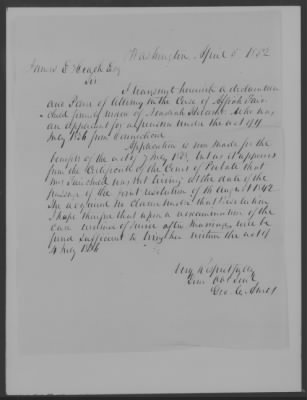 Washington April 5 1852
James E Heath Esq
Sir
I transmit herewith a declaration
and Power of Attorney in the Case of
child former widow of who was
an Applicant for a pension under the act of 4
July 1836 from Connecticut
Application is now made for the
benefit of the act of 7 July 1838, but as it appears
from the Certificate of the Court of Probate that
Mrs Fairchild was not living at the date of the
passage of the joint resolution of 16 August 1842
She acquired no claim under that Resolution
I hope therefore that upon a reexamination of the
case evidence of service after marriage will be
found sufficient to bring her within the act of
4 July 1836
Very Respectfully
Your Obt Servt
Geo